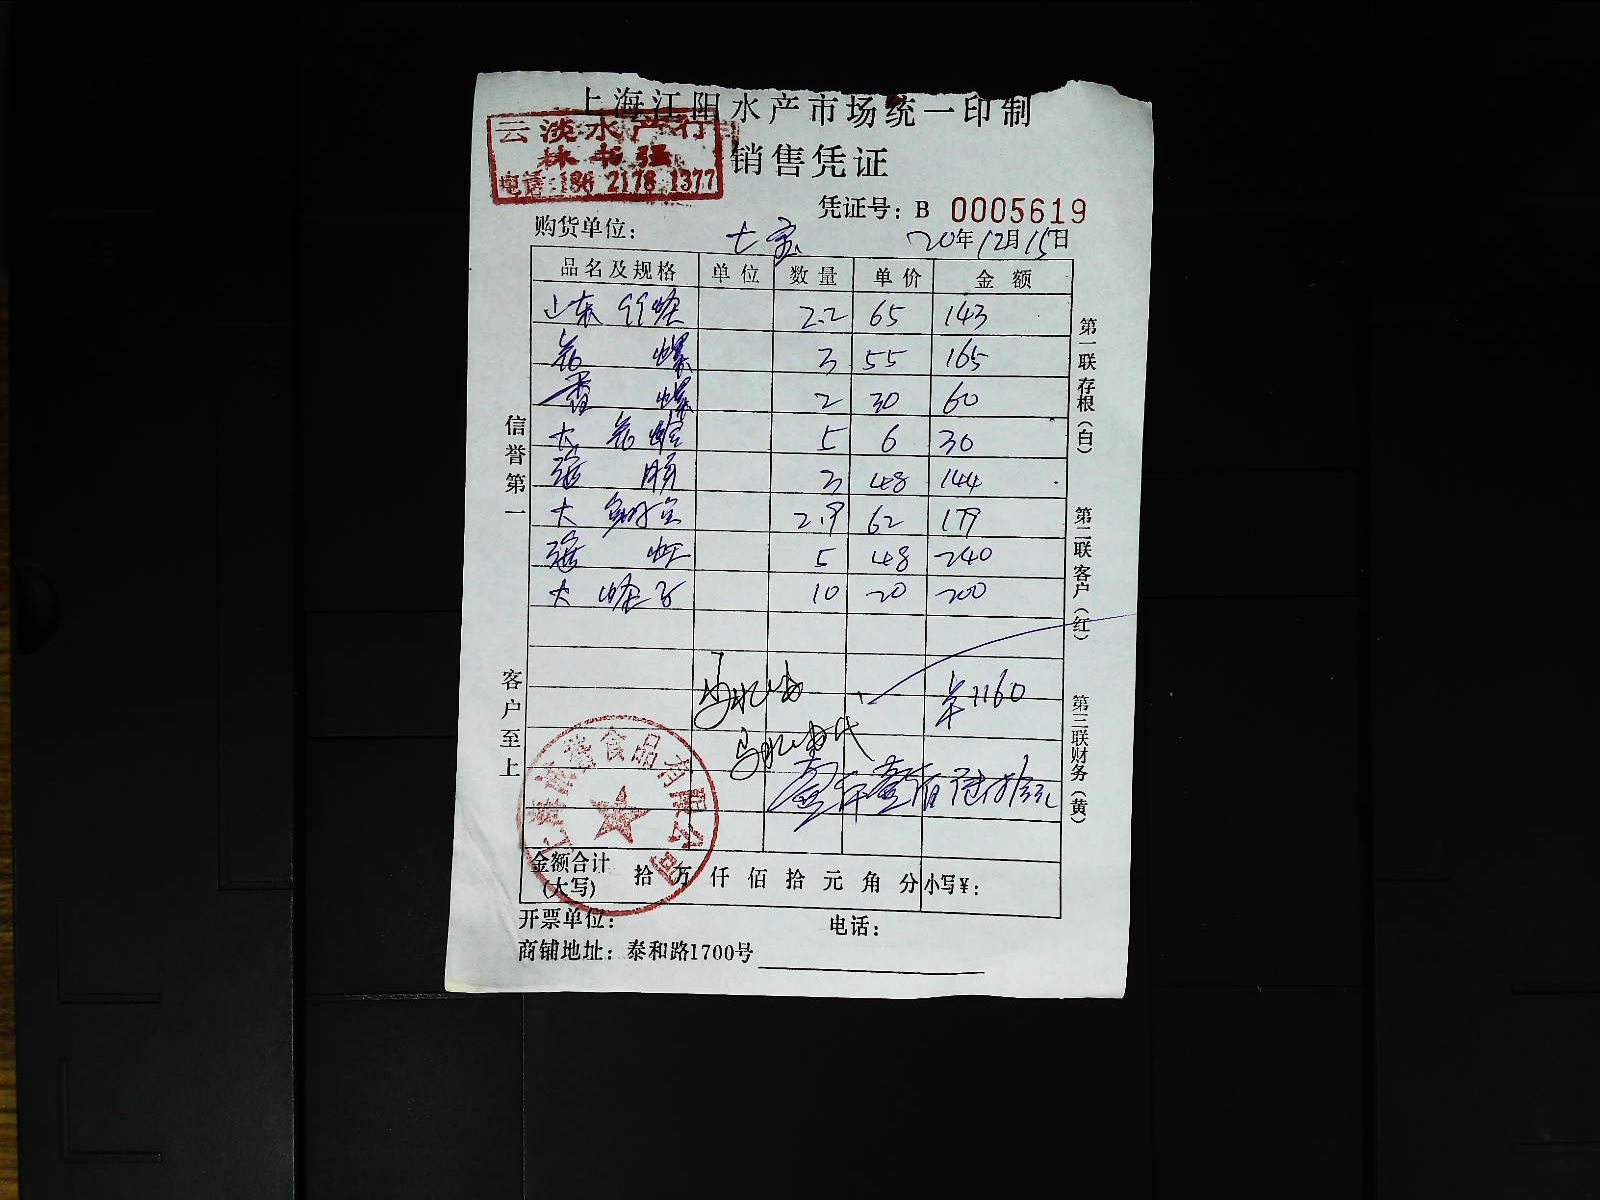 上海江阳水产市场统一印制
云淡水产行
林书强
电话:186 2178 1377
销售凭证
凭证号：B 0005619
购货单位： 七宝 20年12月15日
品名及规格 单位 数量 单价 金额
山东竹蛏 2.2 65 143
花螺 3 55 165
香螺 2 30 60
大花蛤 5 6 30
3 48 144
大 2.9 62 179
5 48 240
大蛏子 10 20 200
¥1160
壹仟壹佰陆拾元
信誉第一
客户至上
第一联存根（白）
第二联客户（红）
第三联财务（黄）
食品有限公司
金额合计
(大写) 拾万仟佰拾元角分 小写¥：
开票单位： 电话：
商铺地址：泰和路1700号